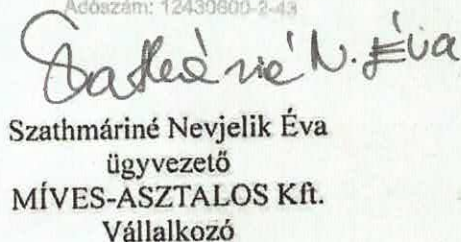 Adószám: 12430600-2-43
Szathmáriné N. Éva
Szathmáriné Nevjelik Éva
ügyvezető
MÍVES-ASZTALOS Kft.
Vállalkozó